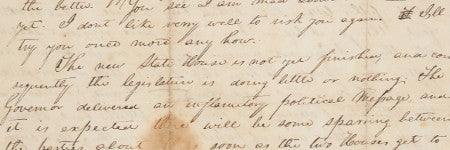 the better. You see I am mad
yet. I dont like verry well to risk you again. I'll
try you once more any how.
The new State House is not yet finished, and con
sequently the legislature is doing little or nothing. The
Governor delivered an inflamatory political Message, and
it is expected there will be some sparring between
the parties about soon as the two Houses get to